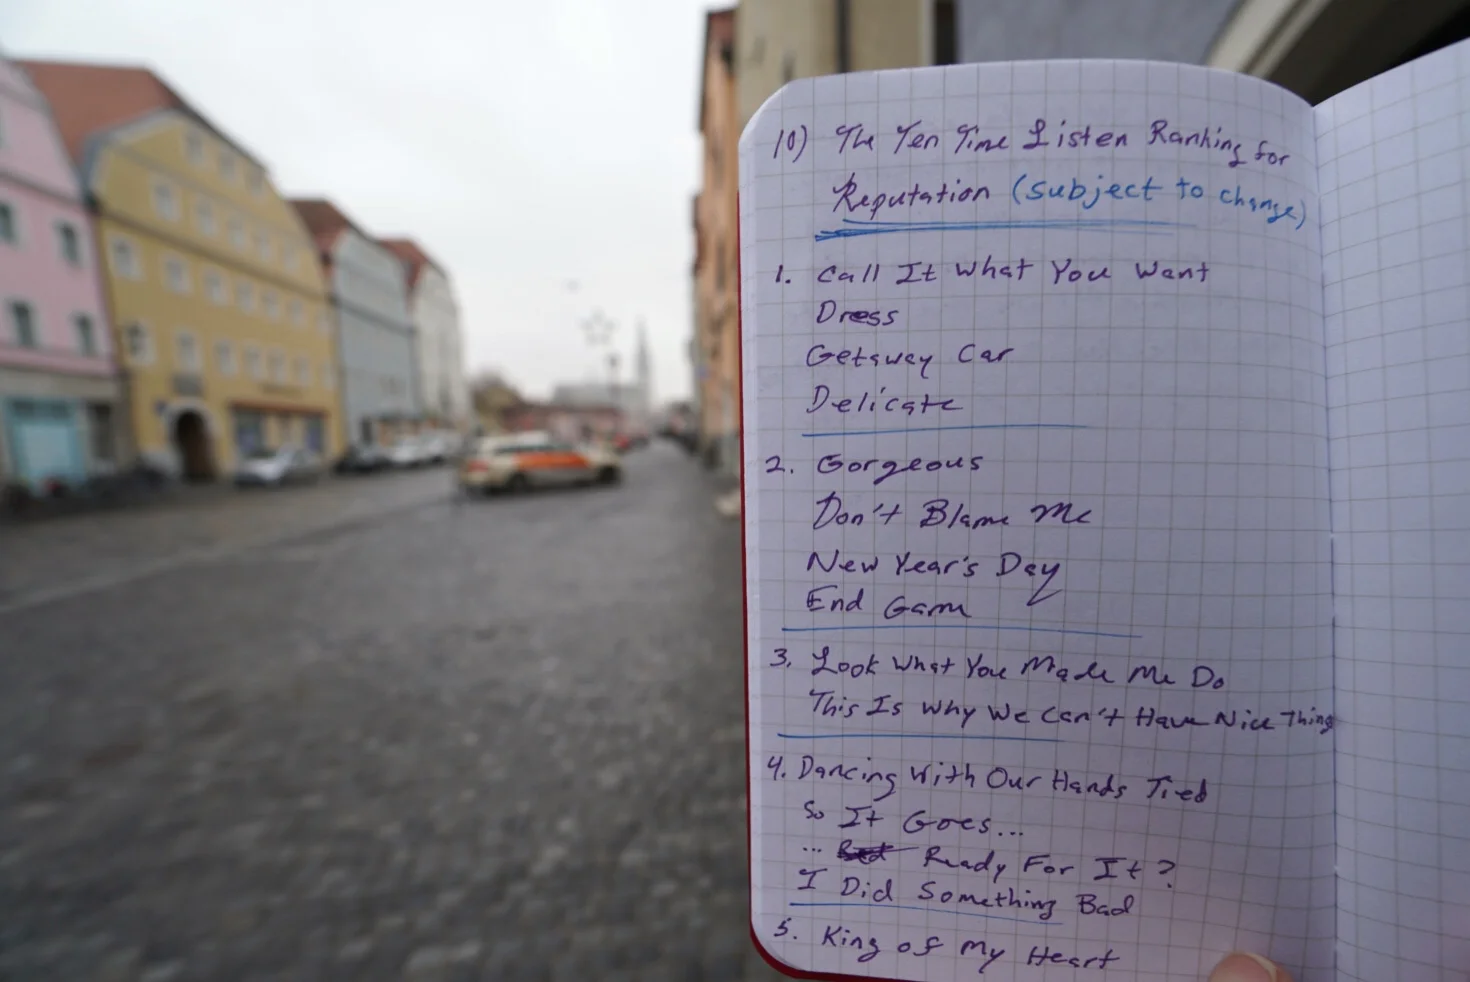 10) The Ten Time Listen Ranking for
Reputation (subject to change)
1. Call It What You Want
Dress
Getaway Car
Delicate
2. Gorgeous
Don't Blame Me
New Year's Day
End Game
3. Look What You Made Me Do
This Is Why We Can't Have Nice Things
4. Dancing With Our Hands Tied
So It Goes...
... Ready For It?
I Did Something Bad
5. King of My Heart